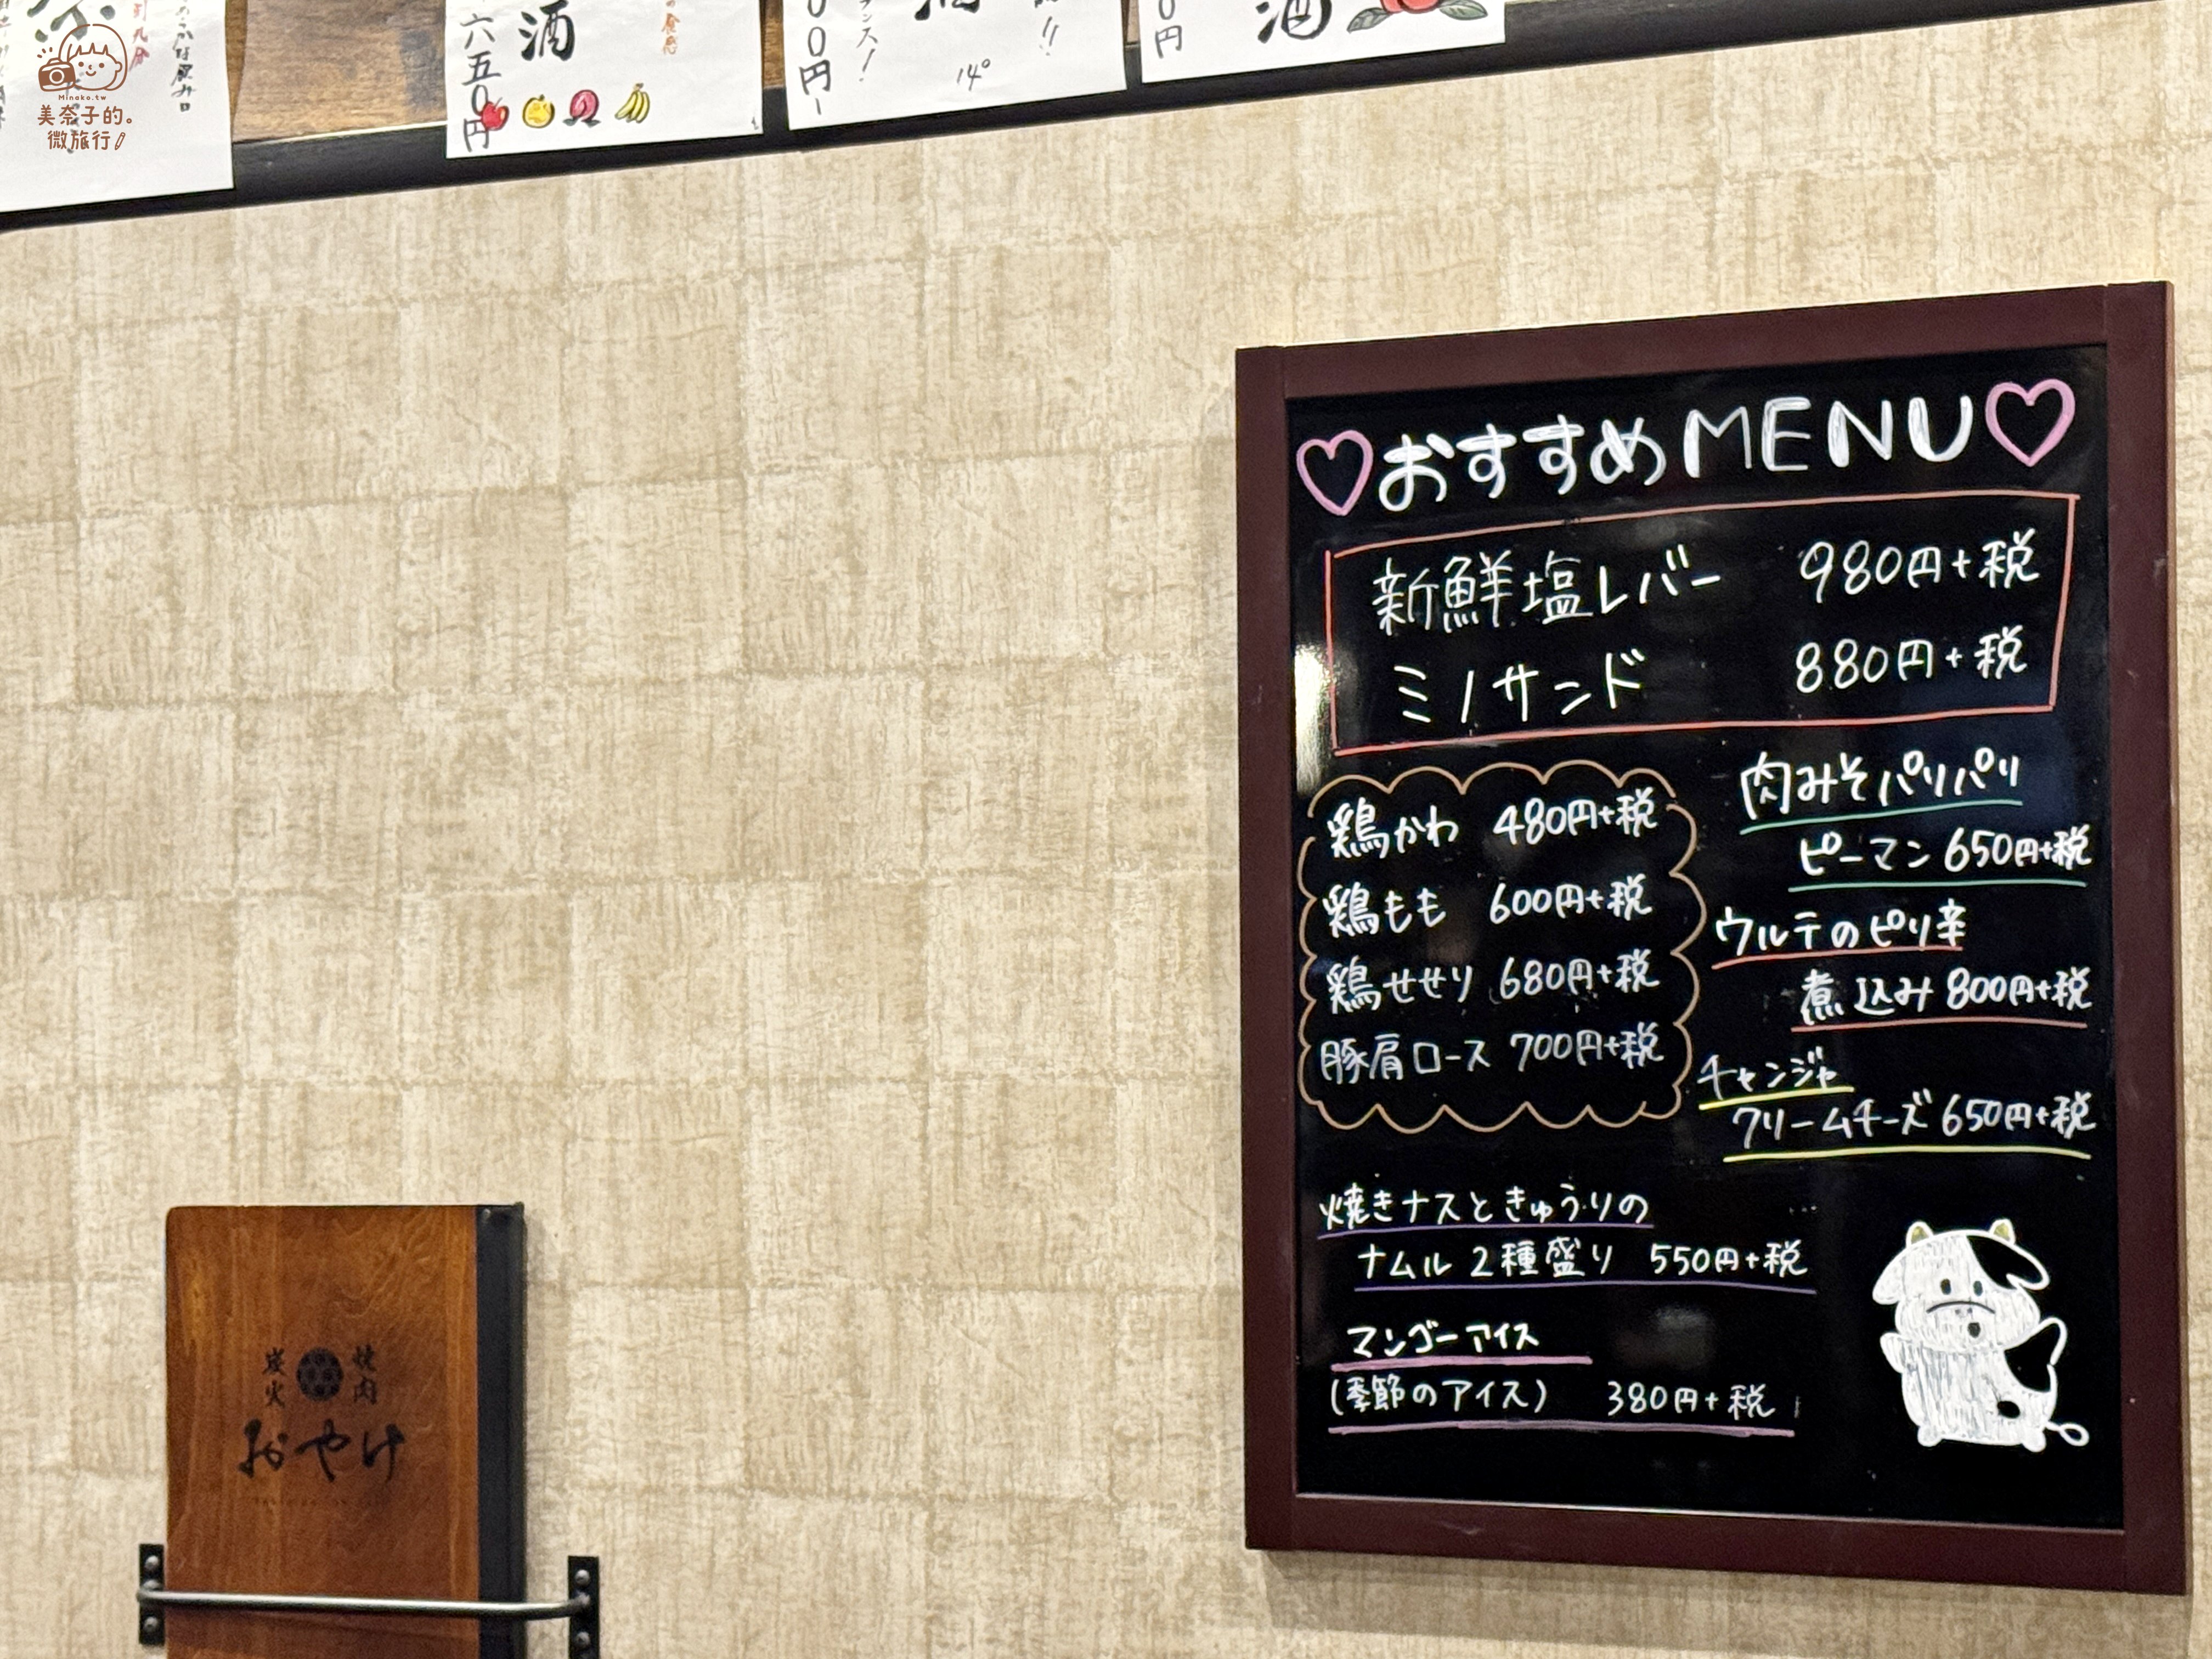 Minako.tw
美奈子的。
微旅行
酒
六五0円
00円
酒
14°
0円
酒
♡おすすめMENU♡
新鮮塩レバー 980円+税
ミノサンド 880円+税
鶏かわ 480円+税
鶏もも 600円+税
鶏せせり 680円+税
豚肩ロース 700円+税
肉みそパリパリ
ピーマン 650円+税
ウルテのピリ辛
煮込み 800円+税
チャンジャ
クリームチーズ 650円+税
焼きナスときゅうりの
ナムル 2種盛り 550円+税
マンゴーアイス
(季節のアイス) 380円+税
炭火 焼肉
おやけ